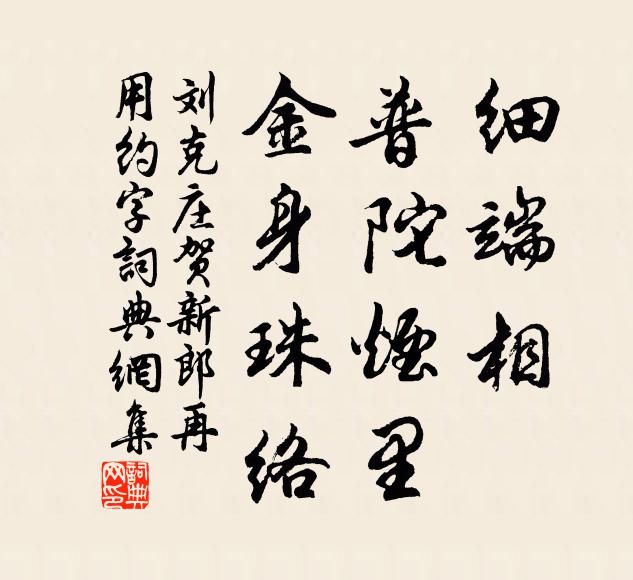 细端相
普陀烟里
金身珠络
刘克庄贺新郎再
用约字詞典網集
詞典
网印